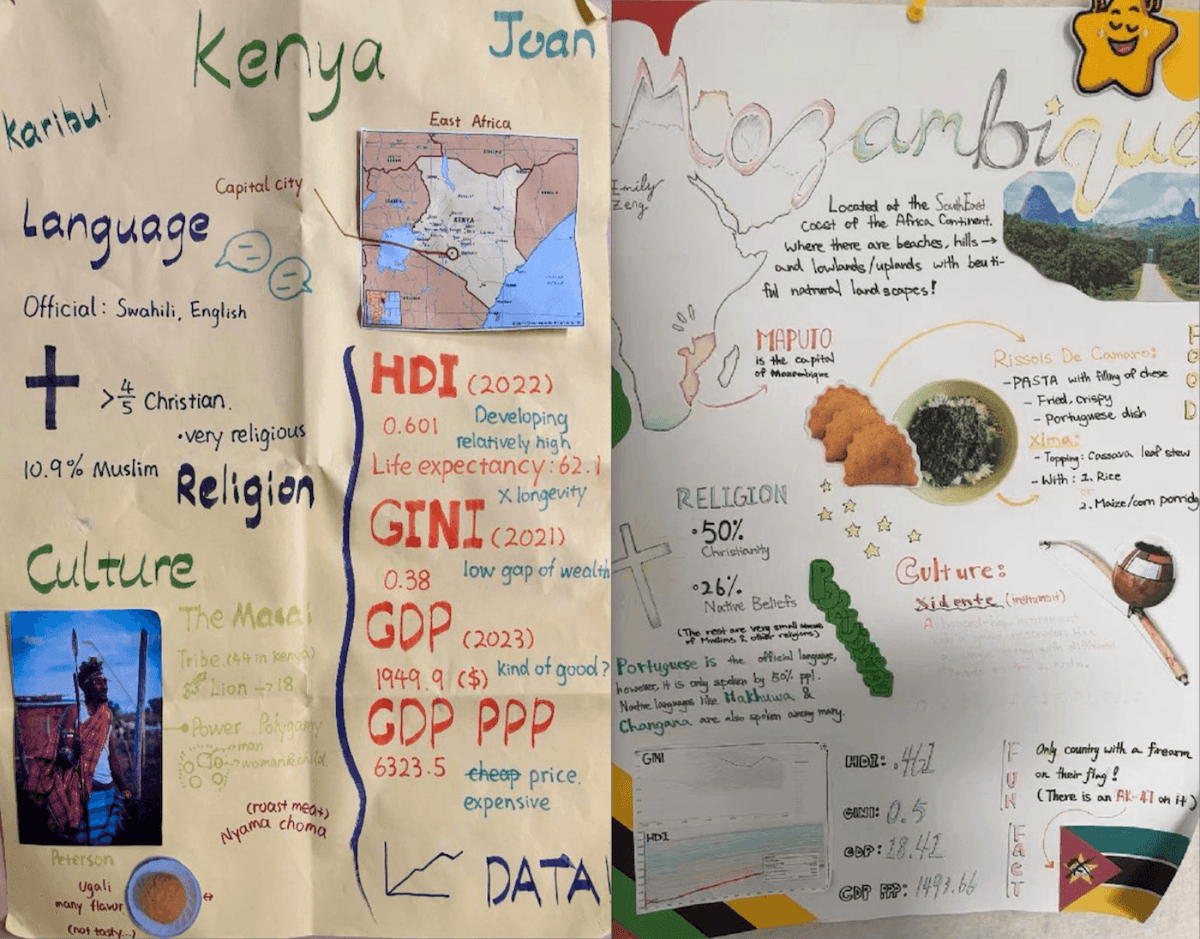 Kenya
Juan
Karibu!
East Africa
Capital city
KENYA
Language
Official: Swahili, English
>4/5 Christian.
•very religious
10.9% Muslim
Religion
Culture
The Masai
Tribe (44 in Kenya)
Lion → 18
•Power Polygamy
man
woman&child.
(roast meat)
Nyama choma
Peterson
Ugali
many flavor
(not tasty...)
HDI (2022)
0.601 Developing
relatively high
Life expectancy: 62.1
X longevity
GINI (2021)
0.38 low gap of wealth
GDP (2023)
1949.9 ($) kind of good?
GDP PPP
6323.5 cheap price.
expensive
DATA!
Mozambique
Emily
Zeng
Located at the SouthEast
coast of the Africa Continent.
where there are beaches, hills →
and lowlands/uplands with beuti-
ful natrural landscapes!
MAPUTO
is the capital
of Mozambique
FOOD
Rissois De Camaro:
- PASTA with filling of chese
- Fried, crispy
- Portuguese dish
Xima:
- Topping: Cassava leaf stew
- With: 1. Rice
or
2. Maize/corn porridg
RELIGION
•50%
Christianity
•26%
Native Beliefs
(The rest are very small
of Muslims & other religions)
Culture:
Xidente (instrument)
Portuguese is the official language,
however, it is only spoken by 50% ppl.
Native languages like Makhuwa &
Changana are also spoken among many.
GINI
HDI
HDI: .461
GINI: 0.5
GDP: 18.41
GDP PPP: 1493.66
FUN FACT
Only country with a firearm
on their flag!
(There is an AK-47 on it)